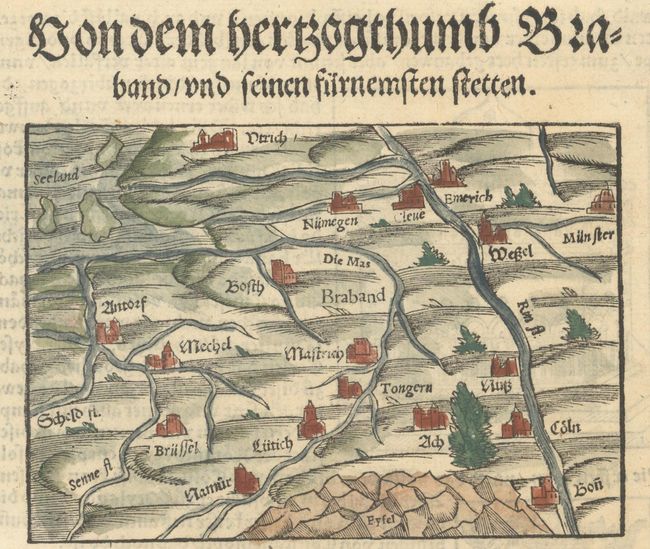 Von dem hertzogthumb Bra-
band/ vnd seinen fürnemsten stetten.
Vtrich/
Seeland
Emerich
Nümegen
Cleue
Münster
Weßel
Die Mas
Bosch
Braband
Antorf
Rin fl.
Mechel
Mastrich
Tongern
Nuiß
Scheld fl.
Brüssel
Lütich
Ach
Cöln
Senne fl.
Namür
Boñ
Eyfel